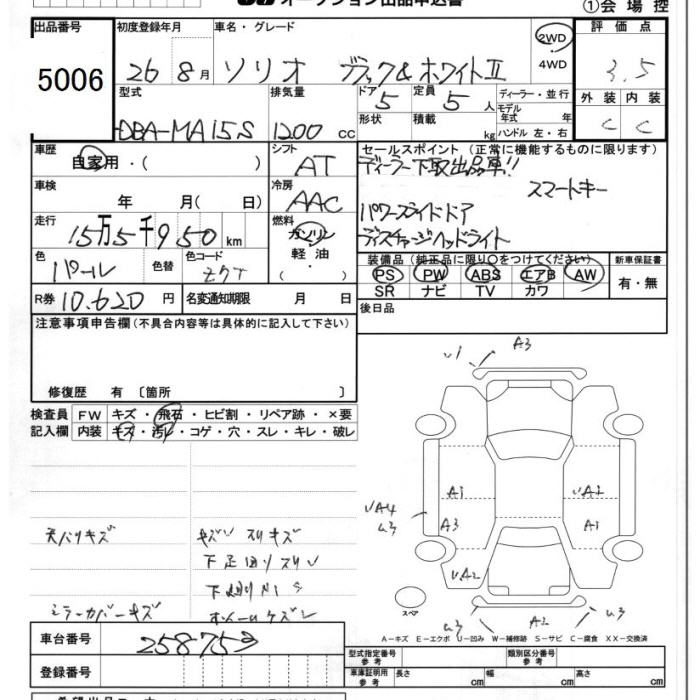 オークション出品申込書
①会場控
出品番号 初度登録年月 車名・グレード 評価点
5006 26 8月 ソリオ ブラック&ホワイトⅡ 2WD 4WD 3.5
型式 排気量 ドア 5 定員 5人 ディーラー・並行 外装 内装
DBA-MA15S 1200cc 形状 積載 kg モデル年式 ハンドル 左・右 C C
車歴 シフト セールスポイント(正常に機能するものに限ります)
自家用・( ) AT ディーラー下取出品車!!
車検 冷房 スマートキー
年 月( 日) AAC パワースライドドア
走行 燃料 ディスチャージヘッドライト
15万5千950km ガソリン
軽油・( )
色 色替 色コード 装備品(純正品に限り○をつけてください) 新車保証書
パール ZQT PS PW ABS エアB AW 有・無
SR ナビ TV カワ
R券 10,620円 名変通知期限 月 日 後日品
注意事項申告欄(不具合内容等は具体的に記入して下さい)
修復歴 有 〔箇所 〕
検査員 FW キズ・飛石・ヒビ割・リペア跡・×要
記入欄 内装 キズ・汚レ・コゲ・穴・スレ・キレ・破レ
U1 A3
A1 UA2
UA4 U3 A3 A1
UA2
U3 A2 U3
スペア
天バリキズ キズ スリキズ
下廻りサビ
ミラーカバーキズ
A−キズ E−エクボ U−凹み W−補修跡 S−サビ C−腐食 XX−交換済
車台番号 258753
型式指定番号 参考 類別区分番号 参考
登録番号 車庫証明用 参考 長さ cm 幅 cm 高さ cm